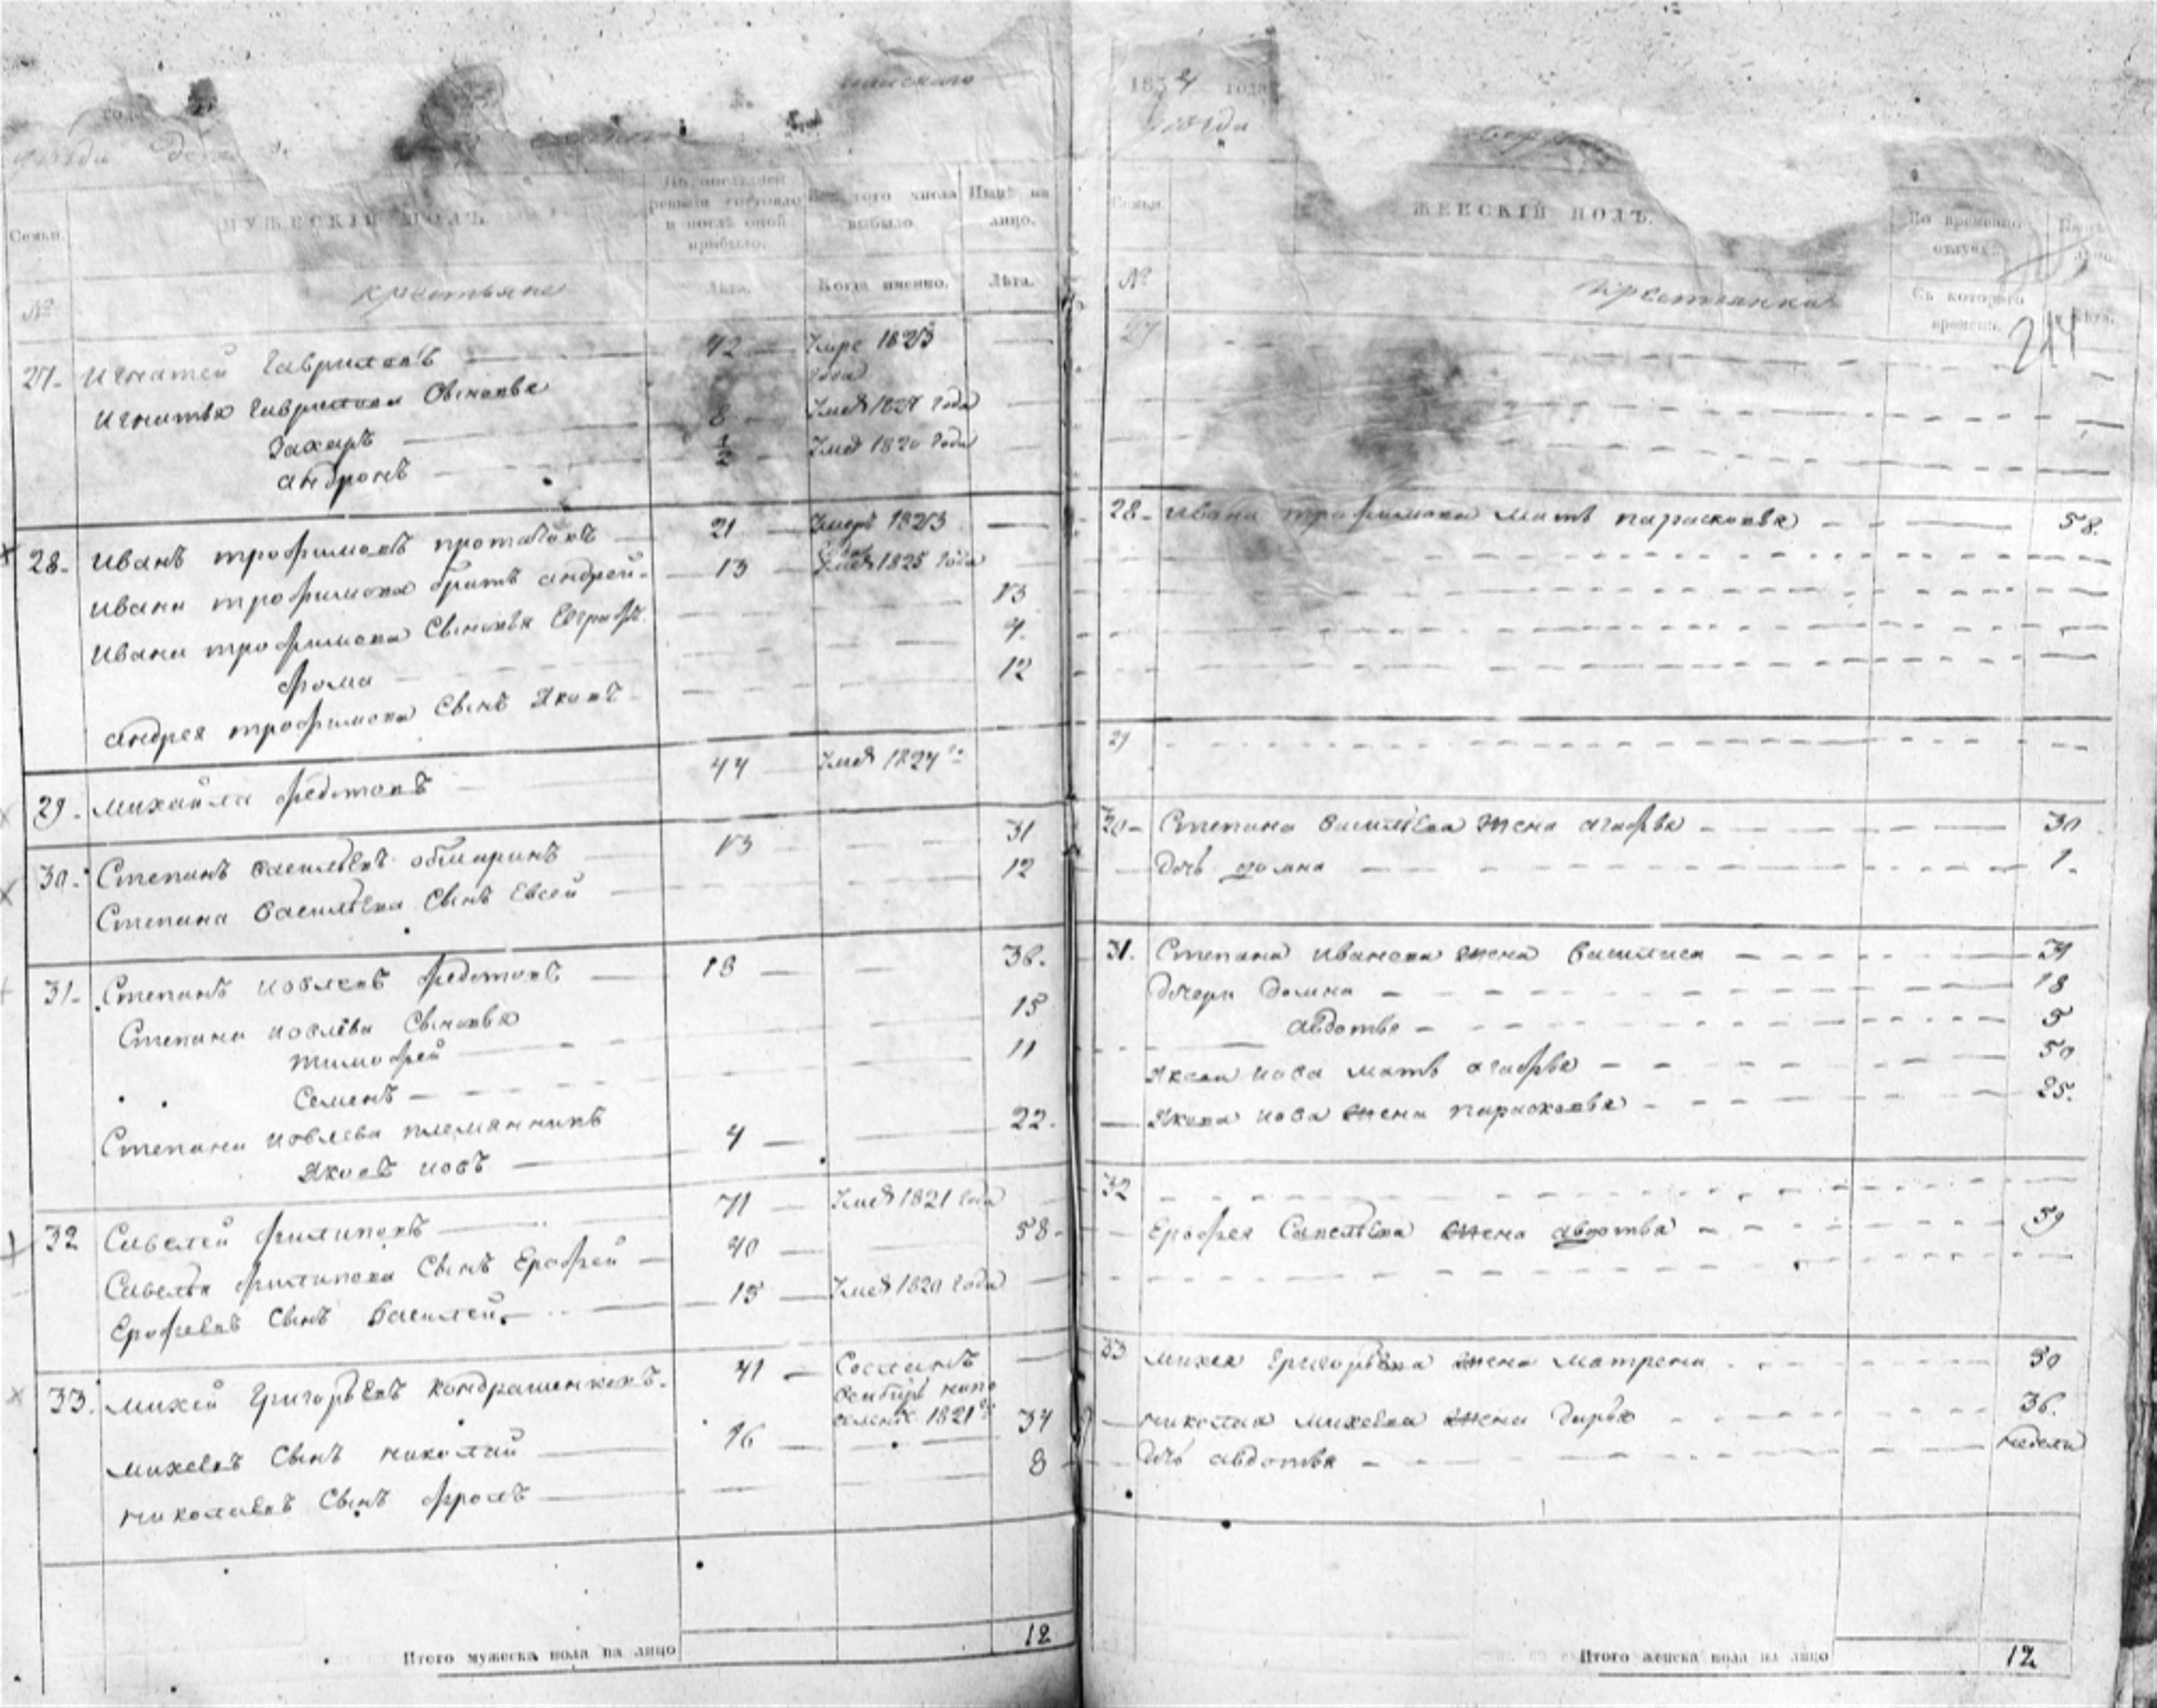 года
уезда
МУЖЕСКІЙ ПОЛЪ.
Семьи.
По последней ревизіи состояло и после оной прибыло.
Изъ того числа выбыло
Ныне на лицо.
№
крестьяне
Лета.
Когда именно.
Лета.
27. Игнатей Гавриловъ 42 Умре 1823 года
Игнатья Гаврилова Сыновья
Захаръ 8 Умеръ 1827 года
Андронъ 1/2 Умеръ 1820 года
28. Иванъ трофимовъ 21 Умеръ 1823 года
Ивана трофимова братъ андрей 13 Умеръ 1825 года
Ивана трофимова Сыновья Евграфъ 13
фома 9.
андрея трофимова Сынъ Яковъ 12
29. Михайла федотовъ 44 Умеръ 1827 го
30. Степанъ васильевъ 13 31
Степана Васильева Сынъ Евсей 12
31. Степанъ иовлевъ федотовъ 18 36.
Степана иовлева Сыновья
тимофей 15
Семенъ 11
Степана иовлева племянникъ
Яковъ иовъ 4 22.
32 Савелей филиповъ 71 Умеръ 1821 года
Савелья филипова Сынъ Ерофей 40 58
Ерофеевъ Сынъ Василей 15 Умеръ 1820 года
33. михей Григорьевъ Кондрашенковъ. 41 Сосланъ
1821 го
михеевъ Сынъ николай 16 34
николаевъ Сынъ фролъ 8
Итого мужеска пола на лицо 12
1834 года
уезда
Семьи.
ЖЕНСКІЙ ПОЛЪ.
Во временной отлучке.
№
крестьянки
Съ котораго времени.
Лета.
214
27
28. Ивана трофимова мать парасковья 58.
29
30 Степана васильева жена агафья 30
Дочь домна 1.
31. Степана Иванова жена василиса 34
Дочери Домна 18
авдотья 5
Якова иова мать агафья 50
Якова иова жена парасковья 25.
32
Ерофея Савельева жена авдотья 59
33 михея Григорьева жена матрена 50
николая михеева жена Дарья 36.
Дочь авдотья недели
Итого женска пола на лицо 12